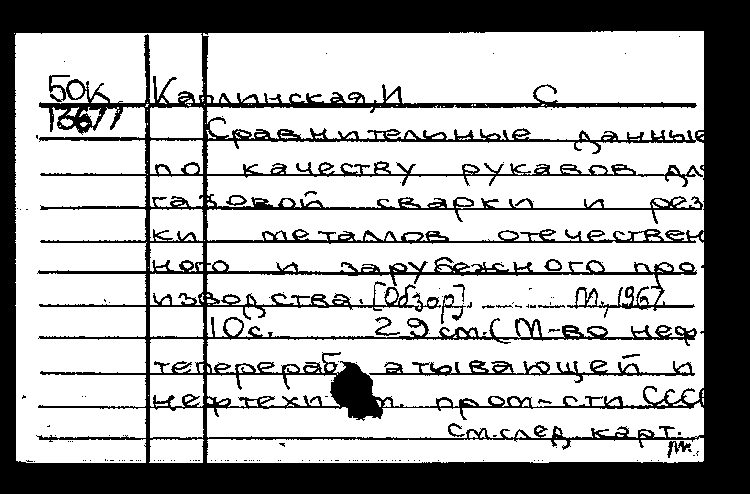 50К Каплинская, И С
13677
Сравнительные данные
по качеству рукавов для
газовой сварки и рез-
ки металлов отечествен-
ного и зарубежного про-
изводства. [Обзор]. М., 1967.
10с. 29 см. (М-во неф-
теперерабатывающей и
нефтехим. пром-сти СССР
см. след. карт.